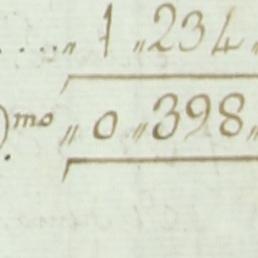 ....„ 1 „ 234 „
)mo „ 0 „ 398 „